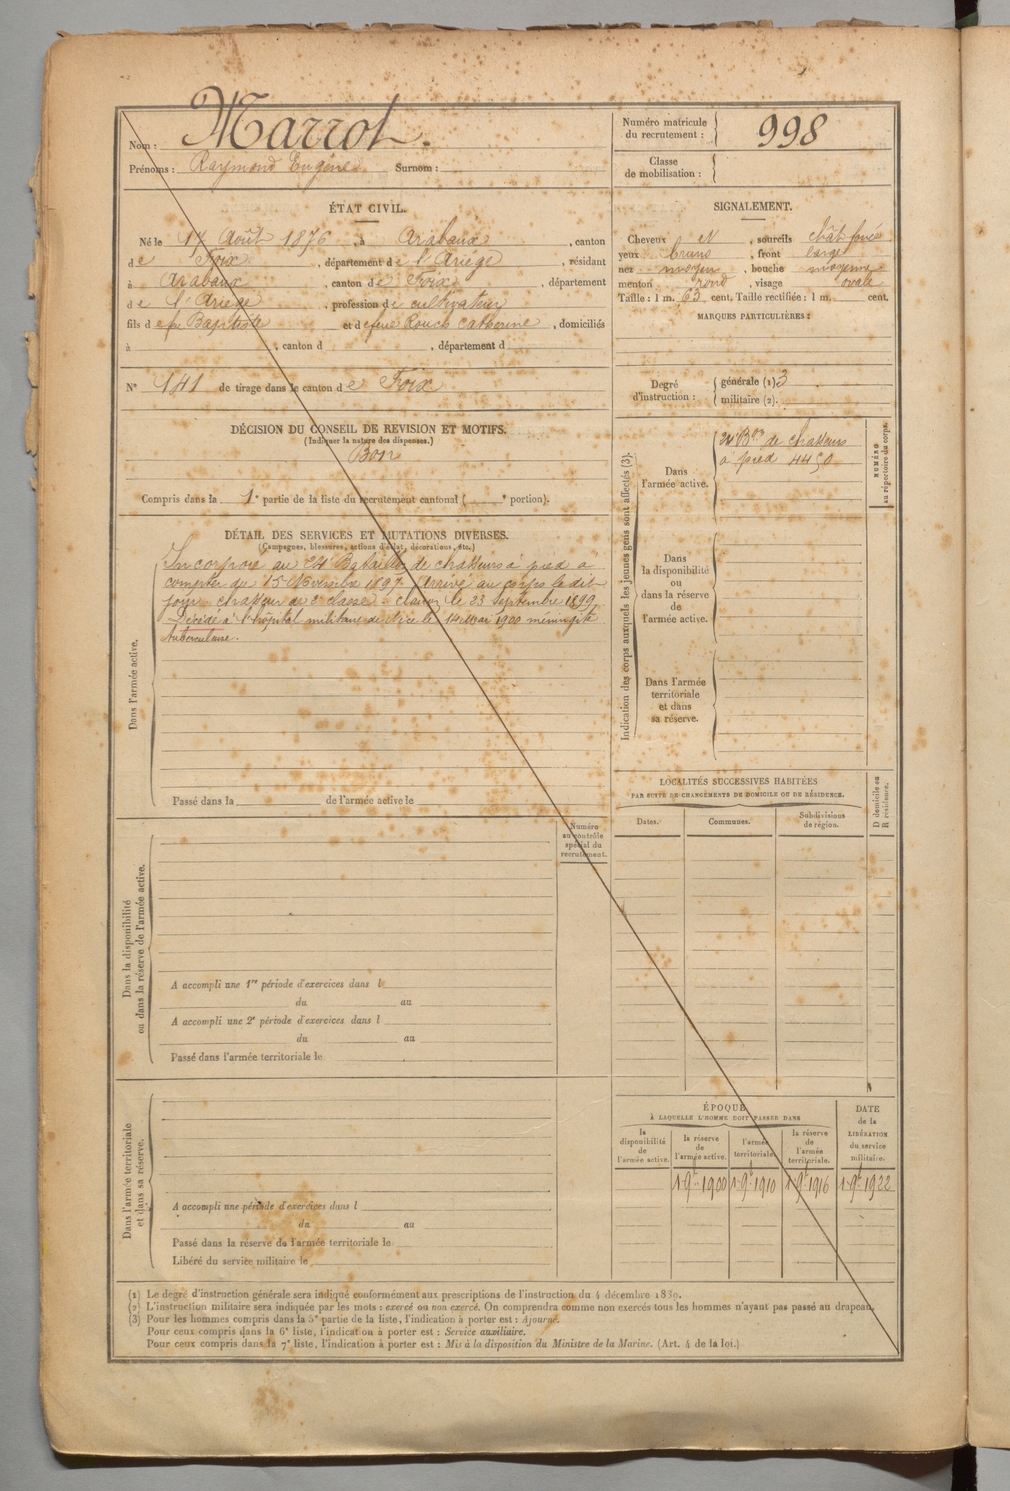 Nom : Marrot.
Prénoms : Raymond Eugène Surnom :
Numéro matricule du recrutement : 998
Classe de mobilisation :
ÉTAT CIVIL.
Né le 17 Août 1876, à Arabaux, canton
de Foix, département de l'Ariège, résidant
à Arabaux, canton de Foix, département
de l'Ariège, profession de cultivateur
fils de feu Baptiste et de feue Rouch Catherine, domiciliés
à , canton d , département d
N° 141 de tirage dans le canton de Foix
SIGNALEMENT.
Cheveux N, sourcils chât foncé
yeux bruns, front large
nez moyen, bouche moyenne
menton rond, visage ovale
Taille : 1 m. 63 cent. Taille rectifiée : 1 m. cent.
MARQUES PARTICULIÈRES :
Degré d'instruction : générale (1) 3
militaire (2).
DÉCISION DU CONSEIL DE REVISION ET MOTIFS.
(Indiquer la nature des dispenses.)
Bon
Compris dans la 1e partie de la liste du recrutement cantonal ( e portion).
DÉTAIL DES SERVICES ET MUTATIONS DIVERSES.
(Campagnes, blessures, actions d'éclat, décorations, etc.)
Dans l'armée active.
Incorporé au 24e Bataillon de chasseurs à pied à
compter du 15 Novembre 1897. Arrivé au corps le dit
jour, chasseur de 2e classe. Clairon le 23 Septembre 1899.
Décédé à l'hôpital militaire de Nice le 14 mai 1900 méningite
tuberculeuse.
Passé dans la de l'armée active le
Indication des corps auxquels les jeunes gens sont affectés (3).
Dans l'armée active.
24e Bon de chasseurs
à pied 4450
NUMÉRO au répertoire du corps.
Dans la disponibilité ou dans la réserve de l'armée active.
Dans l'armée territoriale et dans sa réserve.
LOCALITÉS SUCCESSIVES HABITÉES
PAR SUITE DE CHANGEMENTS DE DOMICILE OU DE RÉSIDENCE.
Dates. Communes. Subdivisions de région.
D domicile ou R résidence.
Numéro au contrôle spécial du recrutement.
Dans la disponibilité ou dans la réserve de l'armée active.
A accompli une 1re période d'exercices dans l
du au
A accompli une 2e période d'exercices dans l
du au
Passé dans l'armée territoriale le
Dans l'armée territoriale et dans sa réserve.
A accompli une période d'exercices dans l
du au
Passé dans la réserve de l'armée territoriale le
Libéré du service militaire le
ÉPOQUE
À LAQUELLE L'HOMME DOIT PASSER DANS
la disponibilité de l'armée active.
la réserve de l'armée active.
l'armée territoriale.
la réserve de l'armée territoriale.
DATE de la LIBÉRATION du service militaire.
1 9b 1900 1 9b 1910 1 9b 1916 1 9b 1922
(1) Le degré d'instruction générale sera indiqué conformément aux prescriptions de l'instruction du 4 décembre 1889.
(2) L'instruction militaire sera indiquée par les mots : exercé ou non exercé. On comprendra comme non exercés tous les hommes n'ayant pas passé au drapeau.
(3) Pour les hommes compris dans la 5e partie de la liste, l'indication à porter est : Ajourné.
Pour ceux compris dans la 6e liste, l'indication à porter est : Service auxiliaire.
Pour ceux compris dans la 7e liste, l'indication à porter est : Mis à la disposition du Ministre de la Marine. (Art. 4 de la loi.)